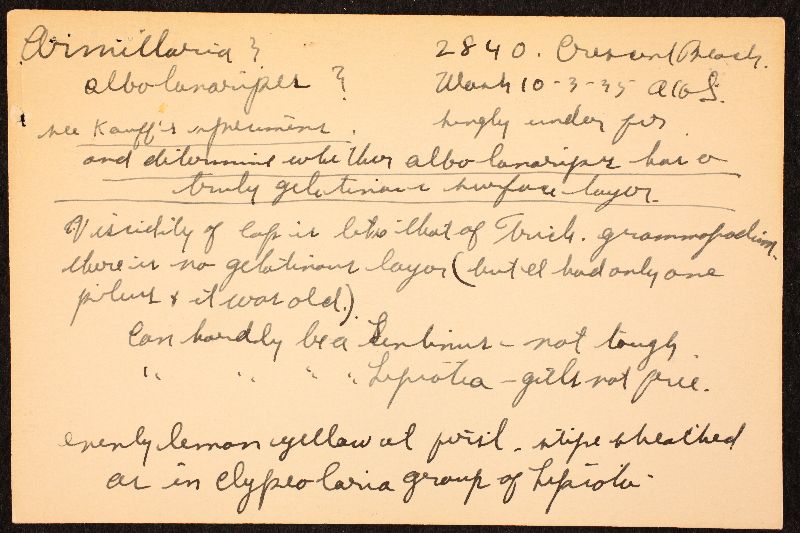 Armillaria ? 2840. Crescent Beach.
albolanaripes ? Wash 10-3-35 AHS.
see Kauff's specimens. singly under fir
and determine whether albolanaripes has a
truly gelatinous surface layer.
Viscidity of cap is like that of Trich. grammopodium.
there is no gelatinous layer (but I had only one
pileus & it was old.)
Can hardly be a Lentinus - not tough
" " " " Lepiota - gills not free.
evenly lemon yellow at first. stipe sheathed
as in clypeolaria group of Lepiota